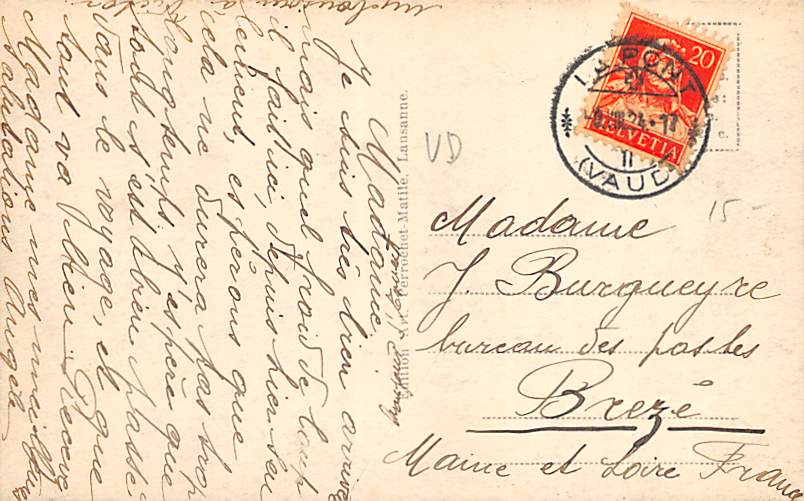 Madame
Je suis très bien arrivée
mais quel froid de loup
il fait ici, depuis hier
espérons que
cela ne durera pas trop
longtemps. J'espère que
tout s'est bien passé
le voyage, et que
tout va bien. Recevez
Madame mes meilleures
salutations Angèle
Edition Art. Perrochet-Matile, Lausanne.
VD
20
HELVETIA
LE PONT
(VAUD)
15-
Madame
J. Burgueyre
bureau des postes
Brezé
Maine et Loire France